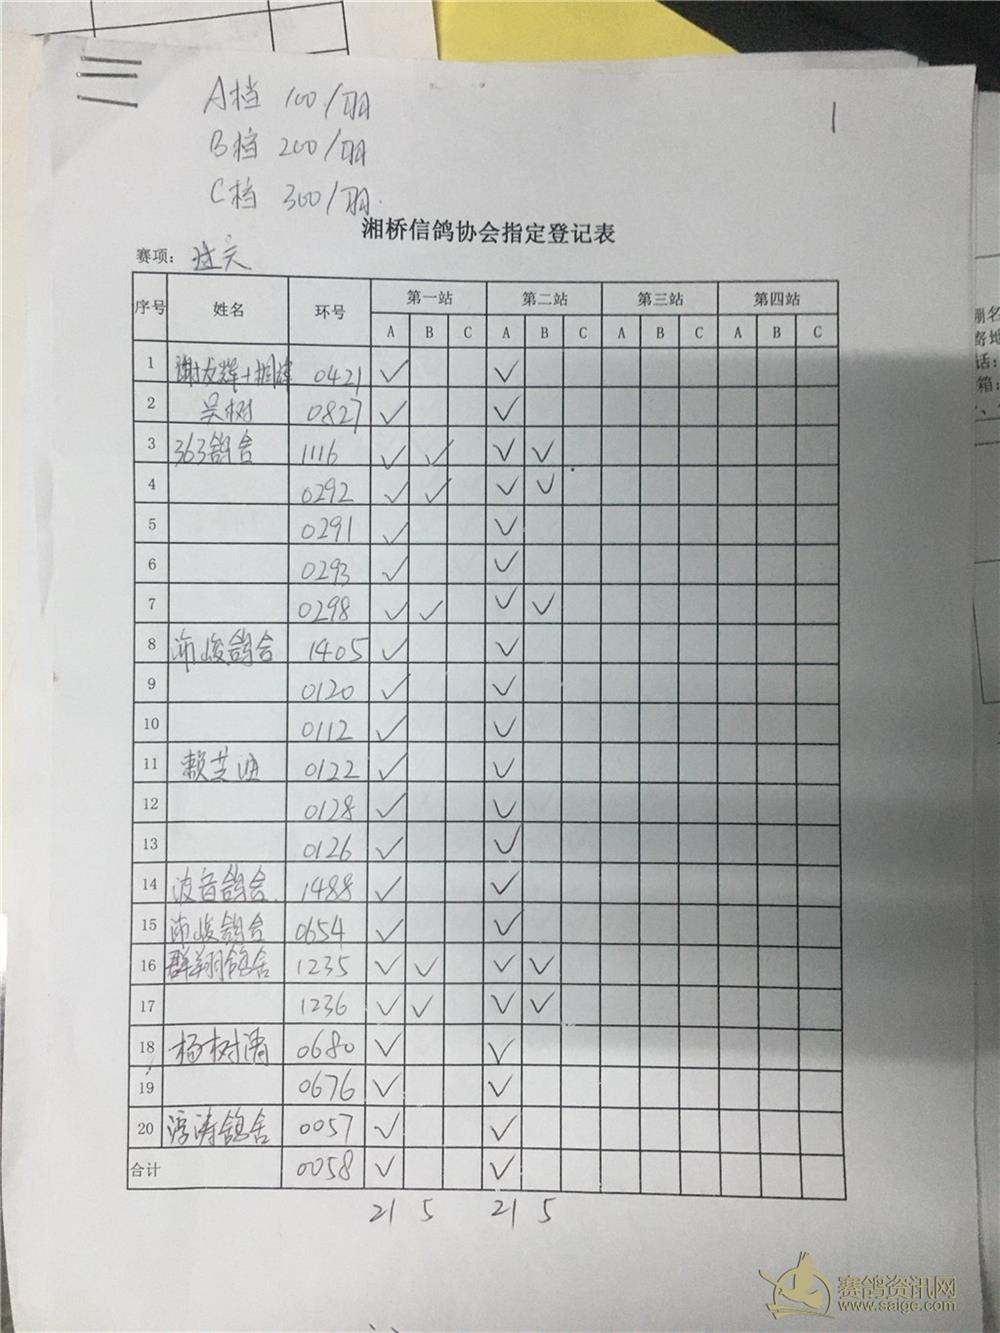 A档 100/羽
B档 200/羽
C档 300/羽
1
湘桥信鸽协会指定登记表
赛项:
序号 姓名 环号 第一站 第二站 第三站 第四站
A B C A B C A B C A B C
1 0421 ✓ ✓
2 吴树 0827 ✓ ✓
3 363鸽舍 1116 ✓ ✓ ✓ ✓
4 0292 ✓ ✓ ✓ ✓
5 0291 ✓ ✓
6 0293 ✓ ✓
7 0298 ✓ ✓ ✓ ✓
8 沛峻鸽舍 1405 ✓ ✓
9 0120 ✓ ✓
10 0112 ✓ ✓
11 0122 ✓ ✓
12 0128 ✓ ✓
13 0126 ✓ ✓
14 波音鸽舍 1488 ✓ ✓
15 沛峻鸽舍 0654 ✓ ✓
16 群翔鸽舍 1235 ✓ ✓ ✓ ✓
17 1236 ✓ ✓ ✓ ✓
18 0680 ✓ ✓
19 0676 ✓ ✓
20 浮涛鸽舍 0057 ✓ ✓
合计 0058 ✓ ✓
21 5 21 5
赛鸽资讯网
www.saige.com